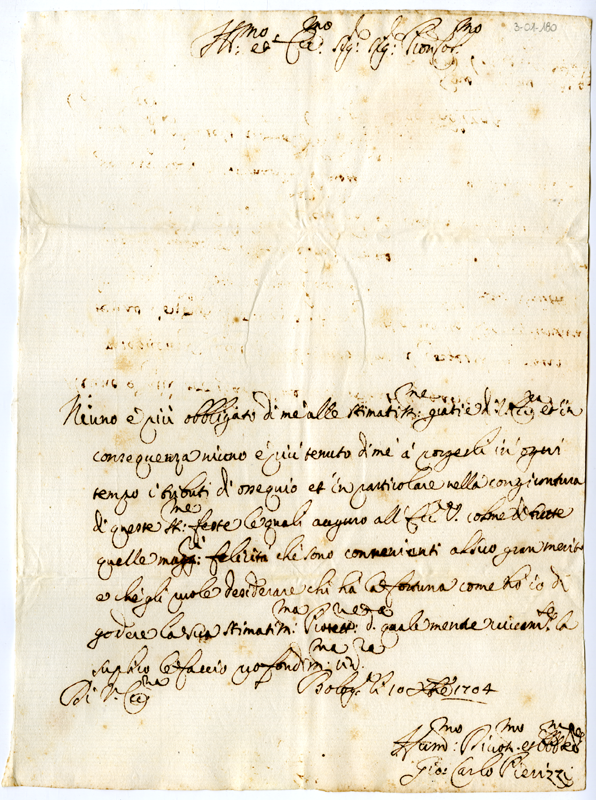 3-02-180
Ill:mo et Ecc:mo Sig: Sig: Pron Col:mo
Niuno è più obbligato di me alle stimatiss:me gratie di V. Ecc:za et in
consequenza niuno è più tenuto di me à porgerli in ogni
tempo i tributi di ossequio et in particolare nella congiontura
di queste SS:me feste le quali auguro all'Ecc:za V. colme di tutte
quelle magg:ri felicità che sono convenienti al suo gran merito
e che gli vuole desiderare chi hà la fortuna come hò io di
godere la sua stimatiss:ma Protett:ne di quale mentre la
suplico le faccio profondiss:ma riv:za
Di V. Ecc:za Bolog:a li 10 Xbre 1704
Hum:mo Divot:mo et Obb:mo
Gio: Carlo Pierizzi